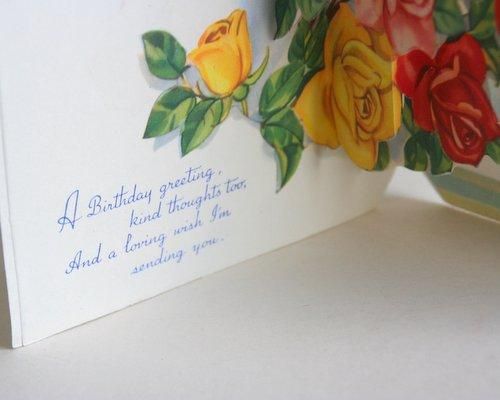 A Birthday greeting,
kind thoughts too,
And a loving wish I'm
sending you.